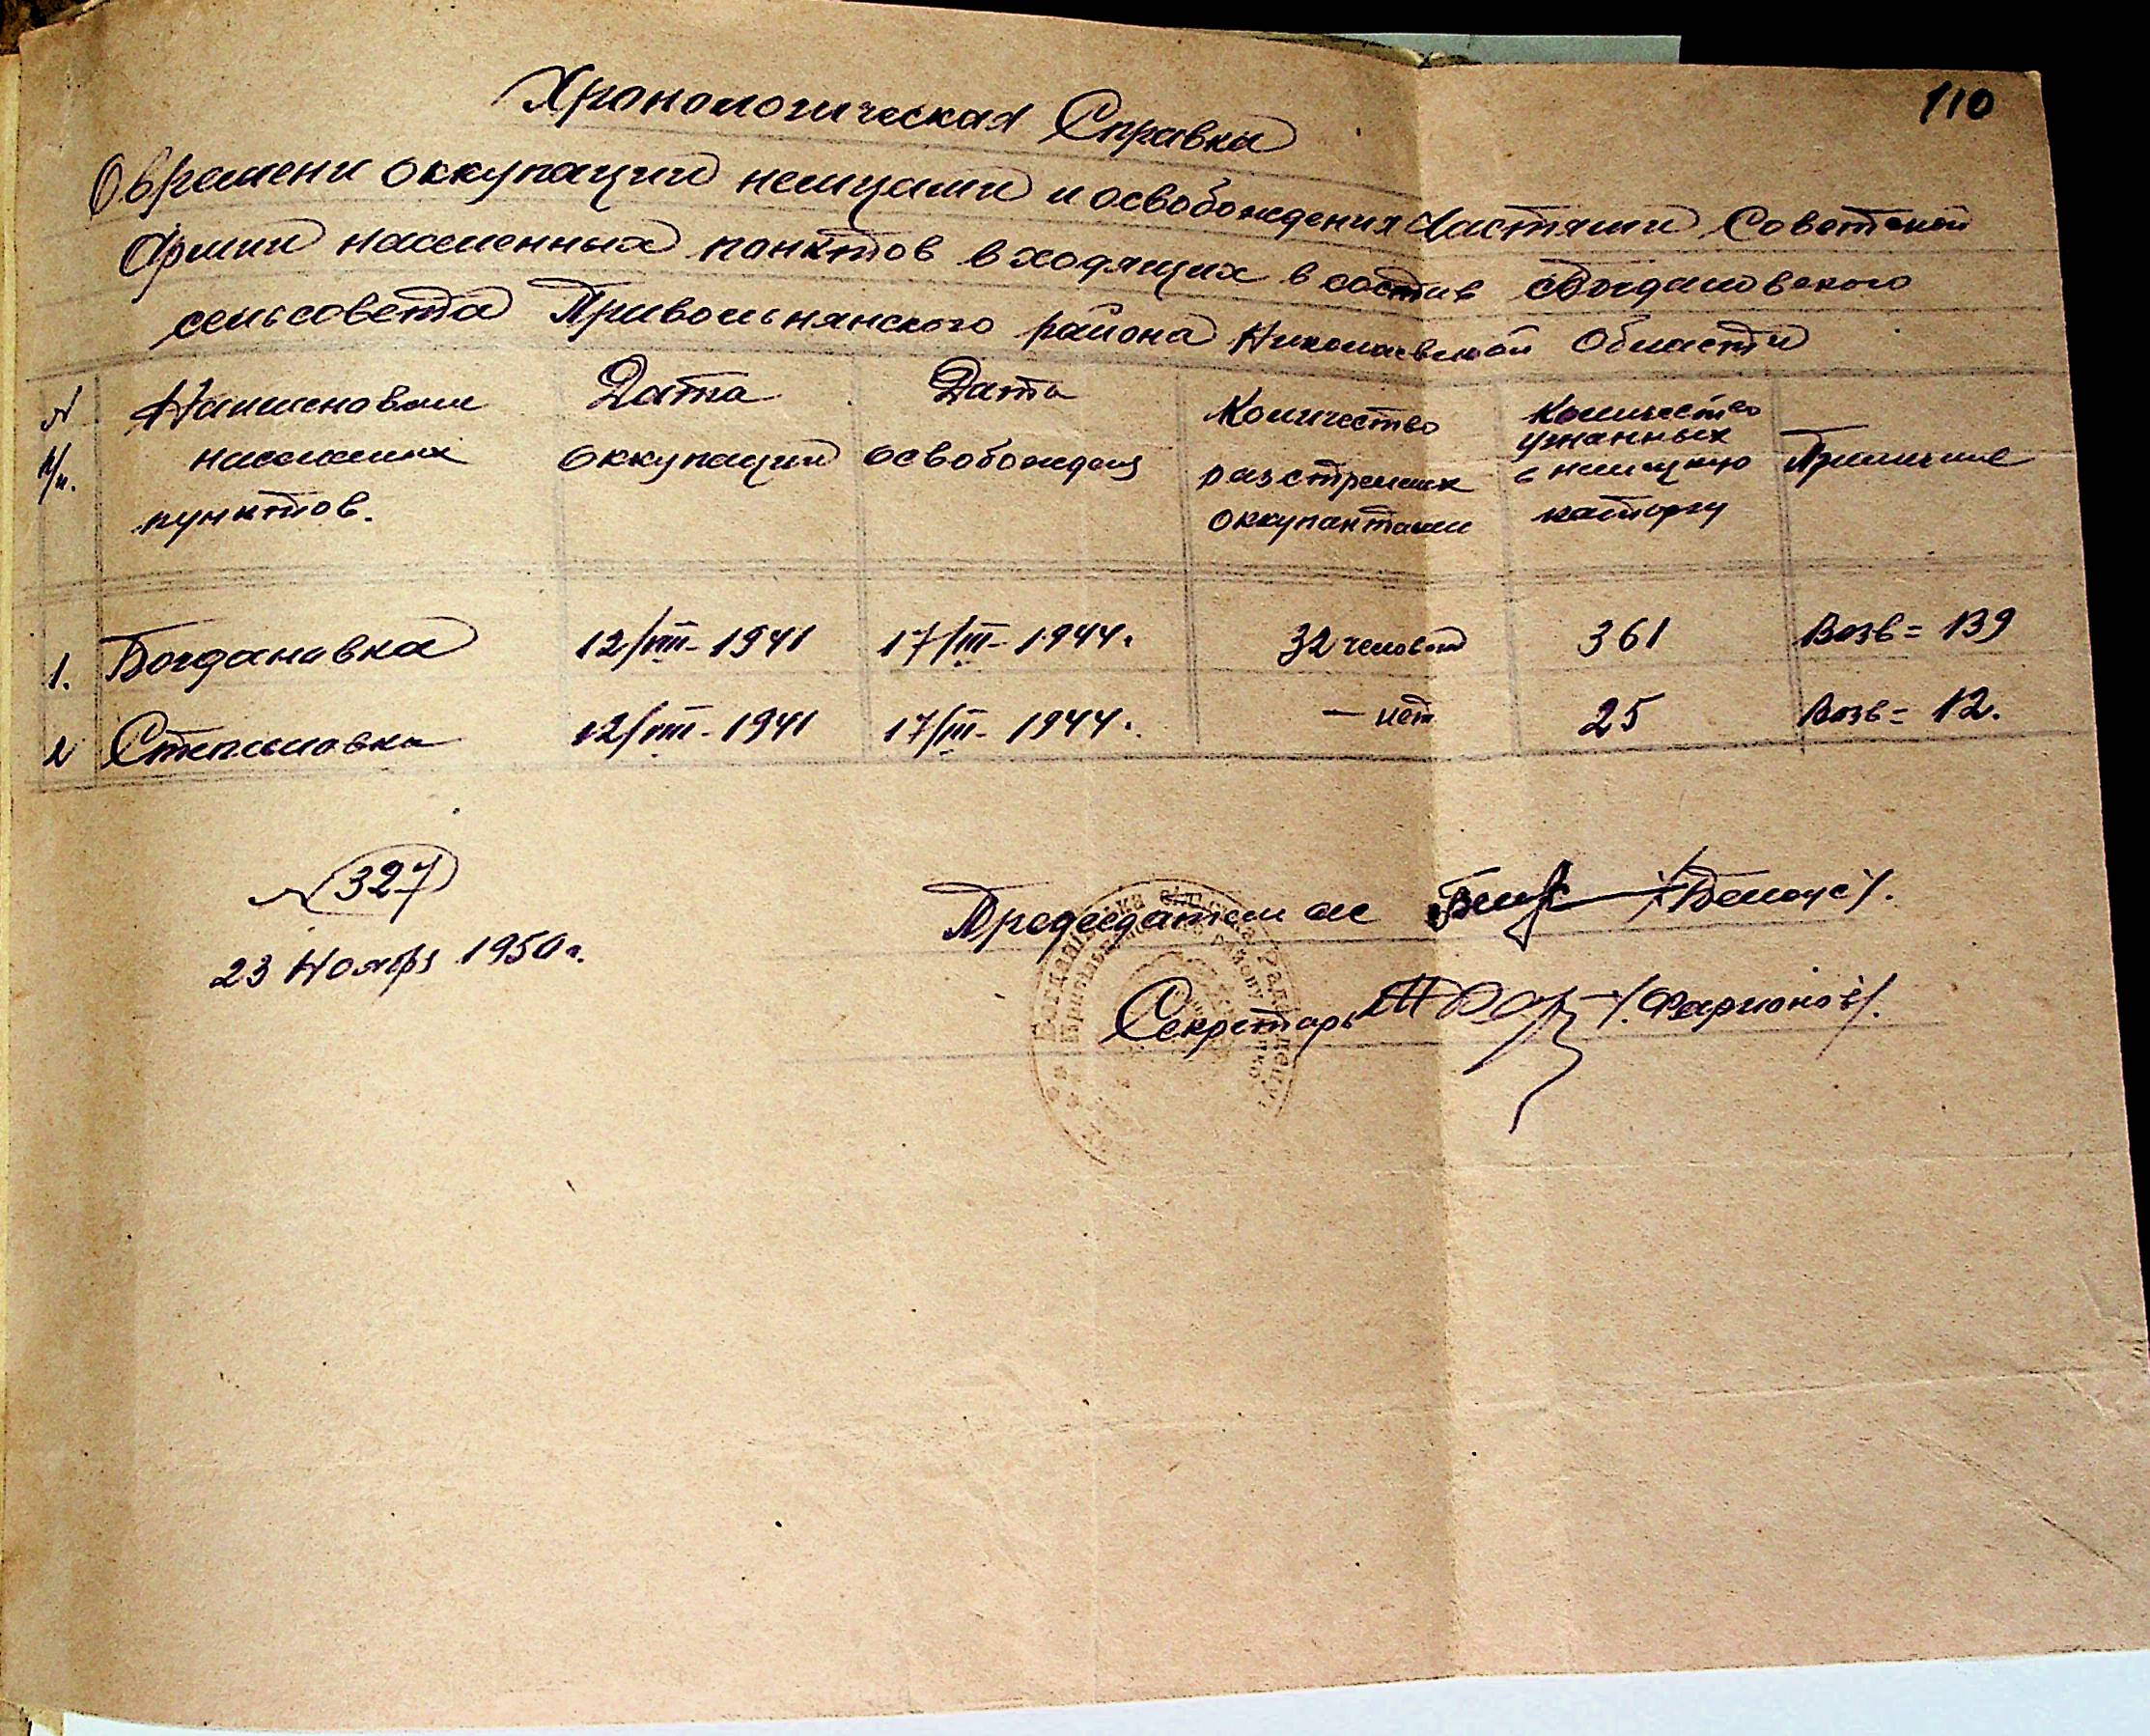 110
Хронологическая Справка
О времени оккупации немцами и освобождения Частями Советской
Армии населенных понктов входящих в состав Богдановского
сельсовета Привольнянского района Николаевской Области
№ п/п. Наименован населенных пунктов. Дата оккупации Дата освобожден Количество разстрелянных оккупантами Количество угнанных в немецкую каторгу Примечание
1. Богдановка 12/VIII-1941 17/III-1944г. 32 человека 361 Возв = 139
2 Степановка 12/VIII-1941 17/III-1944г. — нет 25 Возв = 12.
№ 327
23 Ноября 1950г.
Председатель с/с /Белоус/.
Секретарь /Фарионов/.